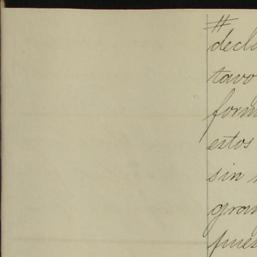 #
decla
tavo
form
estos
sin
gran
pues